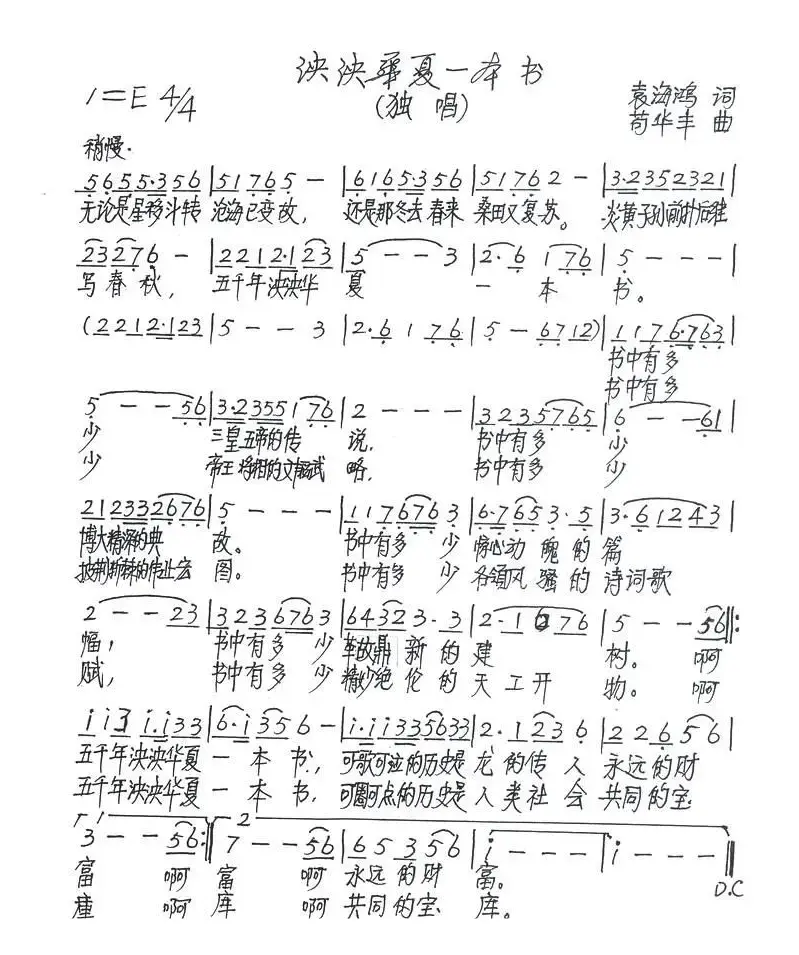 泱泱华夏一本书
1=E 4/4
(独唱)
袁海鸿 词
苟华丰 曲
稍慢.
5 6 5 5 5·3 5 6 | 5 1 7 6 5 - | 6 1 6 5·3 5 6 | 5 1 7 6 2 - | 3·2 3 5 2 3 2 1 |
无论是星移斗转 沧海已变故, 还是那冬去春来 桑田又复苏。 炎黄子孙前扑后继
2 3 2 7 6 - | 2 2 1 2·1 2 3 | 5 - - 3 | 2·6 1 7 6 | 5 - - - |
写春秋, 五千年泱泱华 夏 一本 书。
(2 2 1 2·1 2 3 | 5 - - 3 | 2·6 1 7 6 | 5 - 6 7 1 2) | 1 1 7 6·7 6 3 |
书中有多
书中有多
5 - - 5 6 | 3·2 3 5 5 1 7 6 | 2 - - - | 3 2 3 5 7 6 5 | 6 - - 6 1 |
少 三皇五帝的传 说, 书中有多 少
少 帝王将相的文韬武 略, 书中有多 少
2 1 2 3 3 2 6 7 6 | 5 - - - | 1 1 7 6 7 6 3 | 6·7 6 5 3·5 | 3·6 1 2 4 3 |
博大精深的典 故。 书中有多 少 惊心动魄的篇
披荆斩棘的伟业宏 图。 书中有多 少 各领风骚的诗词歌
2 - - 2 3 | 3 2 3 6 7 6 3 | 6 4 3 2 3·3 | 2·1 6 7 6 | 5 - - 5 6 :
幅, 书中有多 少 革故鼎新的建 树。 啊
赋, 书中有多 少 精妙绝伦的天工开 物。 啊
i i 3 i·i 3 3 | 6·i 3 5 6 - | i·i i 3 3 5 6 3 3 | 2·1 2 3 6 | 2 2 6 5 6 |
五千年泱泱华夏一本书, 可歌可泣的历史是龙的传人 永远的财
五千年泱泱华夏一本书, 可圈可点的历史是人类社会 共同的宝
1 2
3 - - 5 6 : 7 - - 5 6 | 6 5 3 5 6 | i - - - | i - - -
富 啊 富 啊 永远的财 富。
啊 库 啊 共同的宝 库。
D.C